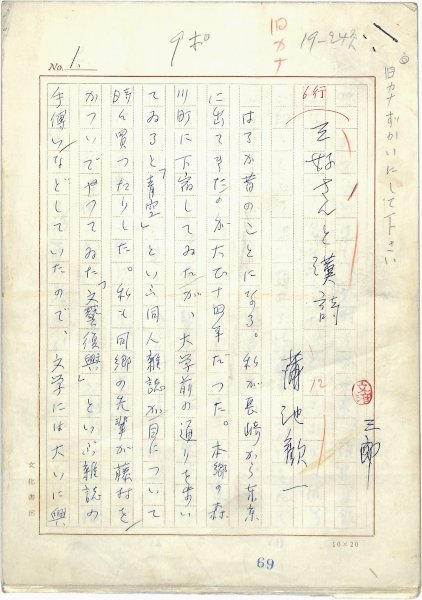 No. 1.
9ポ
旧カナ
19-24字
旧カナづかいにして下さい
6行
三好さんと漢詩
12
蒲池歓一
三郎
はるか昔のことになる。私が長崎から東京
に出てきたのが大正十四年だった。本郷の森
川町に下宿してゐたが、大学前の通りを歩い
てゐると「青空」といふ同人雑誌が目について
時々買つたりした。私も同郷の先輩が藤村を
かついでやつてゐた「文藝復興」といふ雑誌の
手傳いなどしていたので、文学には大いに興
文化書房
10×20
69